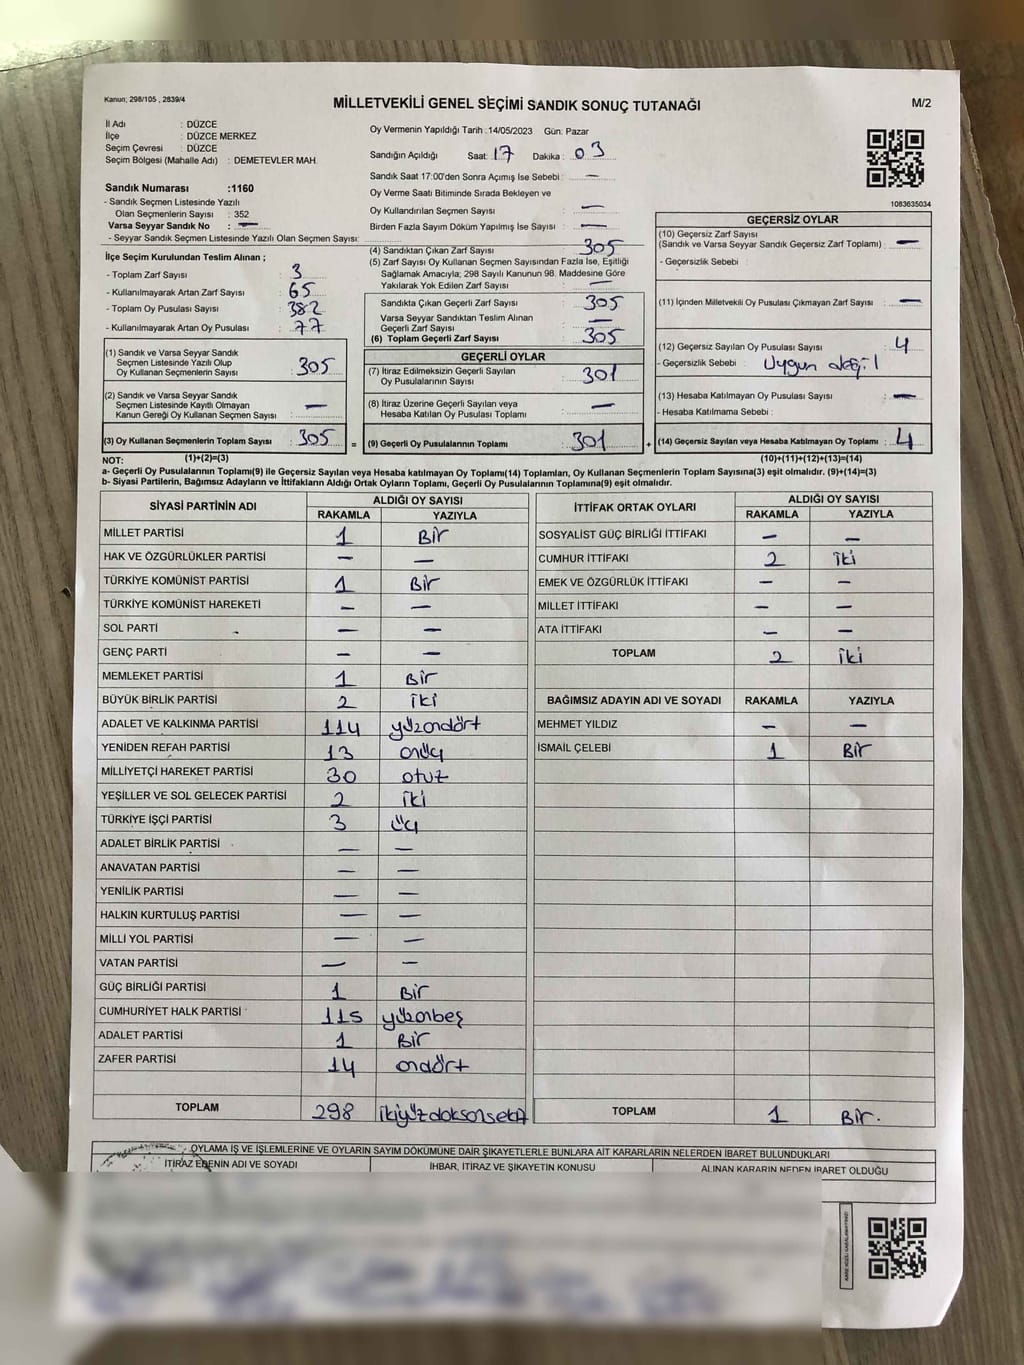 Kanun; 298/105 , 2839/4
MİLLETVEKİLİ GENEL SEÇİMİ SANDIK SONUÇ TUTANAĞI
M/2
İl Adı : DÜZCE
İlçe : DÜZCE MERKEZ
Seçim Çevresi : DÜZCE
Seçim Bölgesi (Mahalle Adı) : DEMETEVLER MAH.
Sandık Numarası :1160
- Sandık Seçmen Listesinde Yazılı
Olan Seçmenlerin Sayısı : 352
Varsa Seyyar Sandık No : —
- Seyyar Sandık Seçmen Listesinde Yazılı Olan Seçmen Sayısı:
Oy Vermenin Yapıldığı Tarih :14/05/2023 Gün: Pazar
Sandığın Açıldığı Saat: 17 Dakika : 03
Sandık Saat 17:00'den Sonra Açımış İse Sebebi : —
Oy Verme Saati Bitiminde Sırada Bekleyen ve
Oy Kullandırılan Seçmen Sayısı : —
Birden Fazla Sayım Döküm Yapılmış İse Sayısı : —
1083635034
İlçe Seçim Kurulundan Teslim Alınan ;
- Toplam Zarf Sayısı : 3
- Kullanılmayarak Artan Zarf Sayısı : 65
- Toplam Oy Pusulası Sayısı : 382
- Kullanılmayarak Artan Oy Pusulası : 77
(1) Sandık ve Varsa Seyyar Sandık
Seçmen Listesinde Yazılı Olup
Oy Kullanan Seçmenlerin Sayısı : 305
(2) Sandık ve Varsa Seyyar Sandık
Seçmen Listesinde Kayıtlı Olmayan
Kanun Gereği Oy Kullanan Seçmen Sayısı : —
(3) Oy Kullanan Seçmenlerin Toplam Sayısı : 305 =
(4) Sandıktan Çıkan Zarf Sayısı : 305
(5) Zarf Sayısı Oy Kullanan Seçmen Sayısından Fazla İse, Eşitliği
Sağlamak Amacıyla; 298 Sayılı Kanunun 98. Maddesine Göre
Yakılarak Yok Edilen Zarf Sayısı : —
Sandıkta Çıkan Geçerli Zarf Sayısı : 305
Varsa Seyyar Sandıktan Teslim Alınan
Geçerli Zarf Sayısı : —
(6) Toplam Geçerli Zarf Sayısı : 305
GEÇERLİ OYLAR
(7) İtiraz Edilmeksizin Geçerli Sayılan
Oy Pusulalarının Sayısı : 301
(8) İtiraz Üzerine Geçerli Sayılan veya
Hesaba Katılan Oy Pusulası Toplamı : —
(9) Geçerli Oy Pusulalarının Toplamı : 301 +
GEÇERSİZ OYLAR
(10) Geçersiz Zarf Sayısı
(Sandık ve Varsa Seyyar Sandık Geçersiz Zarf Toplamı) : —
- Geçersizlik Sebebi :
(11) İçinden Milletvekili Oy Pusulası Çıkmayan Zarf Sayısı : —
(12) Geçersiz Sayılan Oy Pusulası Sayısı : 4
- Geçersizlik Sebebi : Uygun değil
(13) Hesaba Katılmayan Oy Pusulası Sayısı : —
- Hesaba Katılmama Sebebi :
(14) Geçersiz Sayılan veya Hesaba Katılmayan Oy Toplamı : 4
NOT: (1)+(2)=(3) (10)+(11)+(12)+(13)=(14)
a- Geçerli Oy Pusulalarının Toplamı(9) ile Geçersiz Sayılan veya Hesaba katılmayan Oy Toplamı(14) Toplamları, Oy Kullanan Seçmenlerin Toplam Sayısına(3) eşit olmalıdır. (9)+(14)=(3)
b- Siyasi Partilerin, Bağımsız Adayların ve İttifakların Aldığı Ortak Oyların Toplamı, Geçerli Oy Pusulalarının Toplamına(9) eşit olmalıdır.
SİYASİ PARTİNİN ADI ALDIĞI OY SAYISI
RAKAMLA YAZIYLA
MİLLET PARTİSİ 1 Bir
HAK VE ÖZGÜRLÜKLER PARTİSİ — —
TÜRKİYE KOMÜNİST PARTİSİ 1 Bir
TÜRKİYE KOMÜNİST HAREKETİ — —
SOL PARTİ — —
GENÇ PARTİ — —
MEMLEKET PARTİSİ 1 Bir
BÜYÜK BİRLİK PARTİSİ 2 iki
ADALET VE KALKINMA PARTİSİ 114 yüzondört
YENİDEN REFAH PARTİSİ 13 onüç
MİLLİYETÇİ HAREKET PARTİSİ 30 otuz
YEŞİLLER VE SOL GELECEK PARTİSİ 2 iki
TÜRKİYE İŞÇİ PARTİSİ 3 üç
ADALET BİRLİK PARTİSİ — —
ANAVATAN PARTİSİ — —
YENİLİK PARTİSİ — —
HALKIN KURTULUŞ PARTİSİ — —
MİLLİ YOL PARTİSİ — —
VATAN PARTİSİ — —
GÜÇ BİRLİĞİ PARTİSİ 1 Bir
CUMHURİYET HALK PARTİSİ 115 yüzonbeş
ADALET PARTİSİ 1 Bir
ZAFER PARTİSİ 14 ondört
TOPLAM 298 ikiyüzdoksansekiz
İTTİFAK ORTAK OYLARI ALDIĞI OY SAYISI
RAKAMLA YAZIYLA
SOSYALİST GÜÇ BİRLİĞİ İTTİFAKI — —
CUMHUR İTTİFAKI 2 iki
EMEK VE ÖZGÜRLÜK İTTİFAKI — —
MİLLET İTTİFAKI — —
ATA İTTİFAKI — —
TOPLAM 2 iki
BAĞIMSIZ ADAYIN ADI VE SOYADI RAKAMLA YAZIYLA
MEHMET YILDIZ — —
İSMAİL ÇELEBİ 1 Bir
TOPLAM 1 Bir.
OYLAMA İŞ VE İŞLEMLERİNE VE OYLARIN SAYIM DÖKÜMÜNE DAİR ŞİKAYETLERLE BUNLARA AİT KARARLARIN NELERDEN İBARET BULUNDUKLARI
İTİRAZ EDENİN ADI VE SOYADI İHBAR, İTİRAZ VE ŞİKAYETİN KONUSU ALINAN KARARIN NEDEN İBARET OLDUĞU